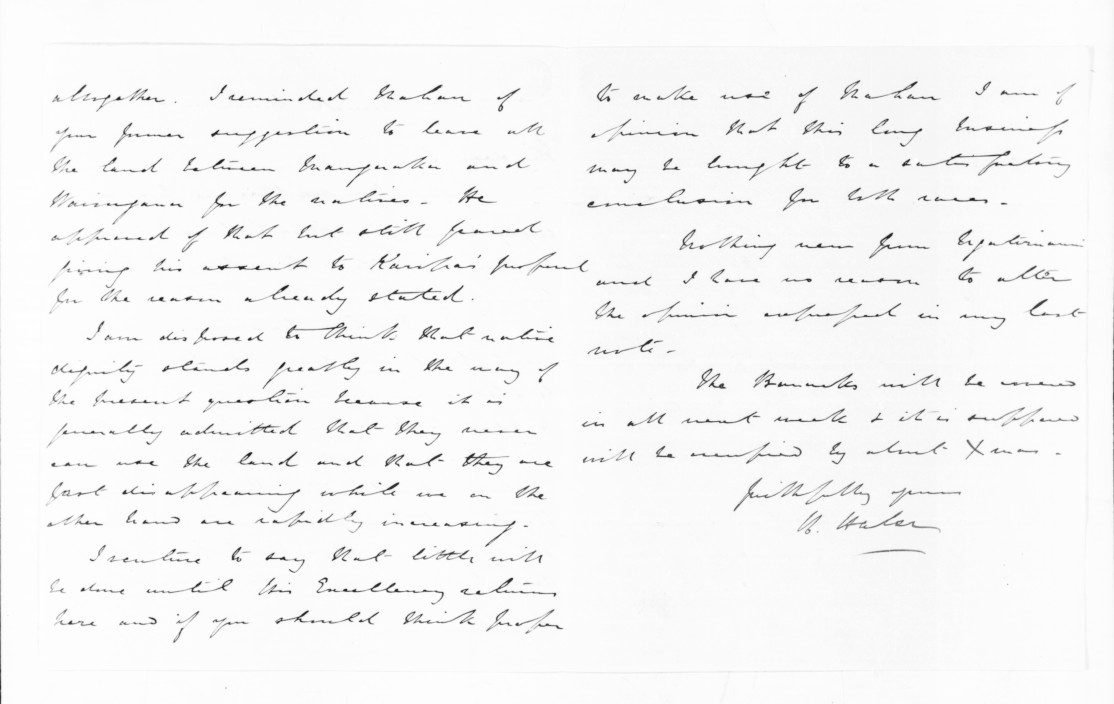 altogether. I reminded Mahau of
your former suggestion to leave all
the land between Mangoraka and
Waiongana for the natives. He
approved of that but still feared
giving his assent to Karira's proposal
for the reason already stated.
I am disposed to think that native
dignity stands greatly in the way of
the present question because it is
generally admitted that they never
can use the land and that they are
fast disappearing while we on the
other hand are rapidly increasing.
I venture to say that little will
be done until His Excellency returns
here and if you should think proper
to make use of Mahau I am of
opinion that this long business
may be brought to a satisfactory
conclusion for both races.
Nothing new from Ngatiruanui
and I have no reason to alter
the opinion expressed in my last
note.
The Barracks will be covered
in all next week & it is supposed
will be occupied by about Xmas.
Faithfully yours
H. Halse